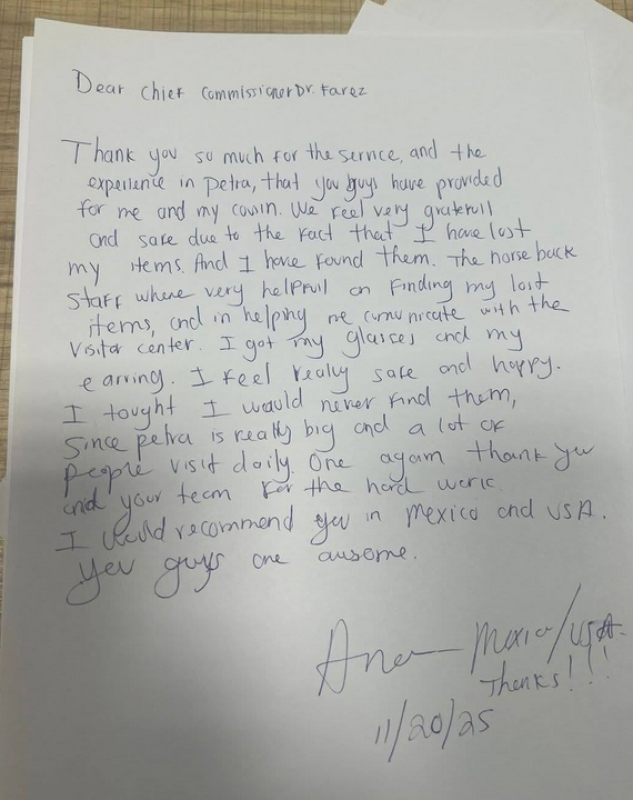 Dear Chief Commissioner Dr. Farez
Thank you so much for the service, and the
experience in Petra, that you guys have provided
for me and my cousin. We feel very gratefull
and safe due to the fact that I have lost
my items. And I have found them. The horse back
staff where very helpfull on finding my lost
items, and in helping me cumunicate with the
Visitor center. I got my glasses and my
earring. I feel really safe and happy.
I tought I would never find them,
Since petra is really big and a lot of
people visit daily. One again thank you
and your team for the hard work.
I would recommend you in Mexico and USA.
You guys are ausome.
Ana Mexico/USA.
Thanks!!!
11/20/25